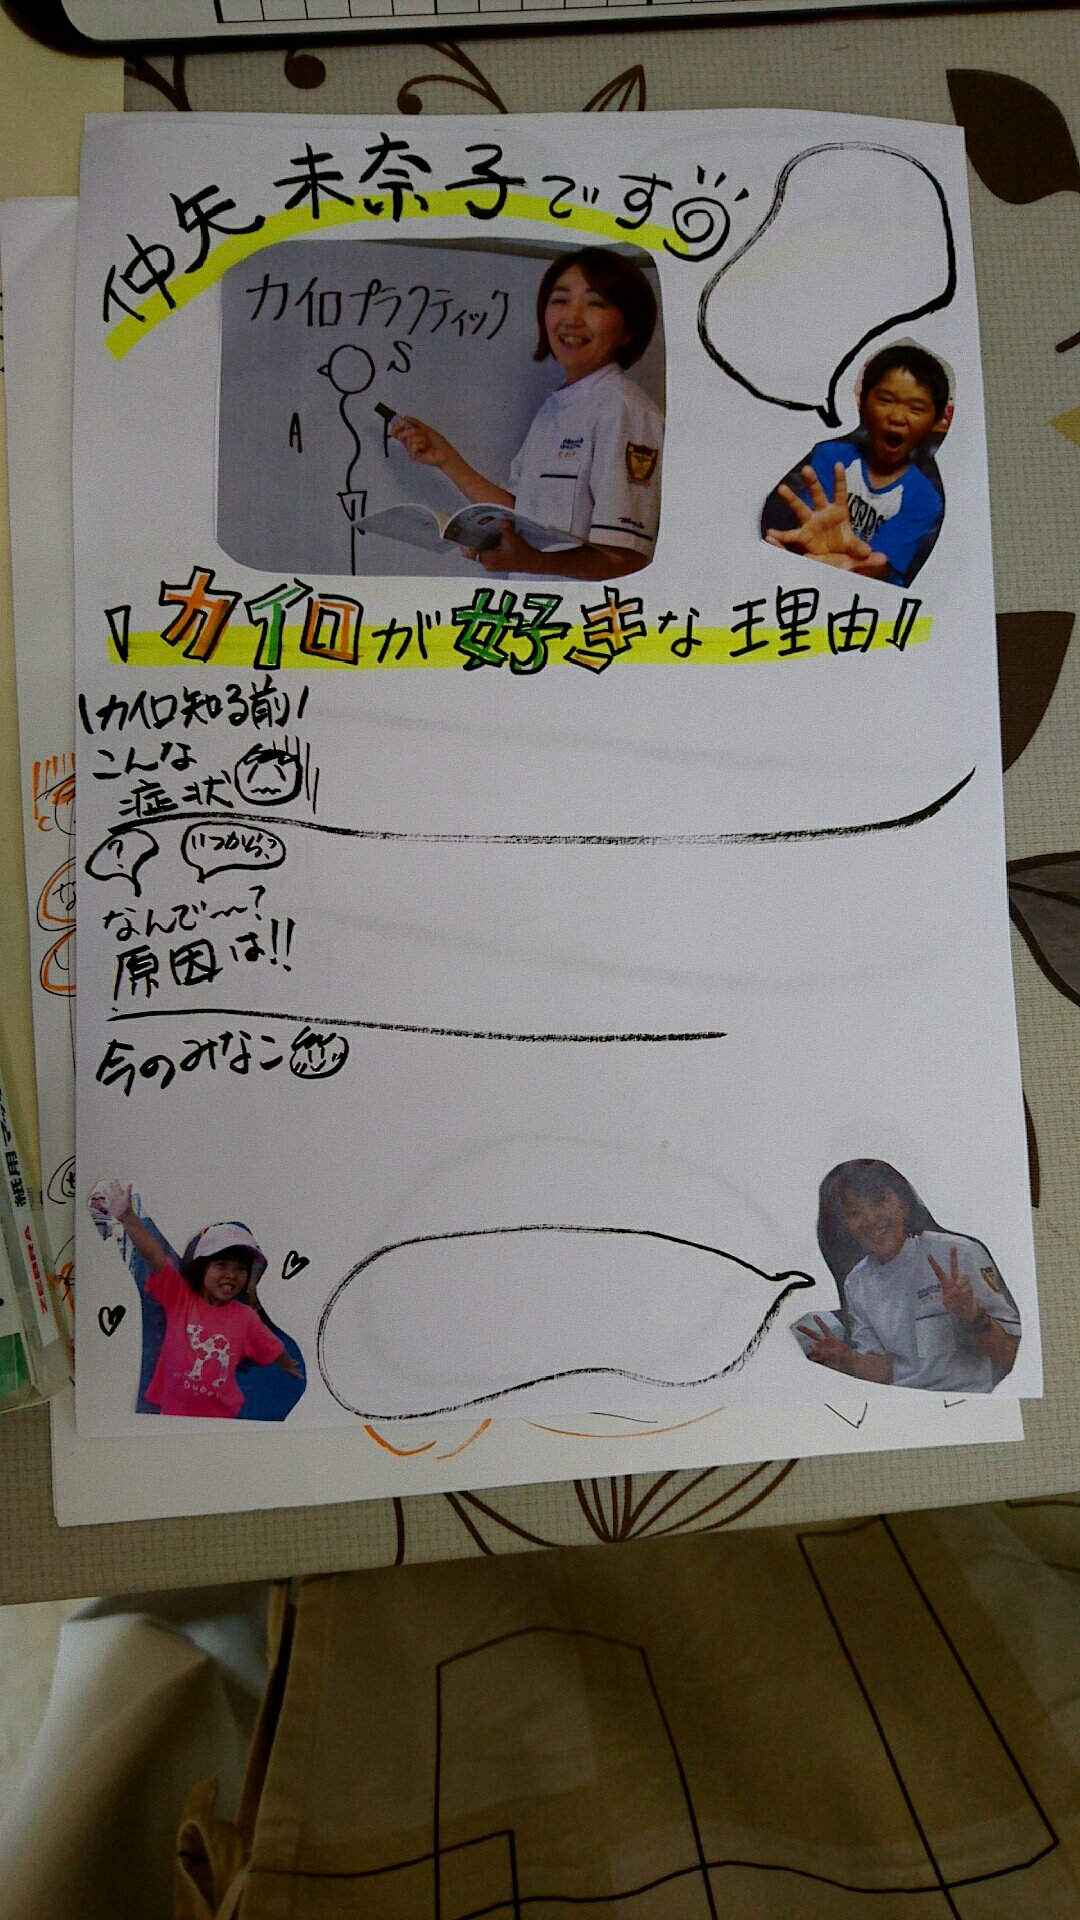 仲矢未奈子です
カイロプラクティック
S
A
P
『カイロが好きな理由』
\カイロ知る前/
こんな
症状
?
いつから?
なんで〜?
原因は!!
今のみなこ
ZEBRA
紙用マッキー